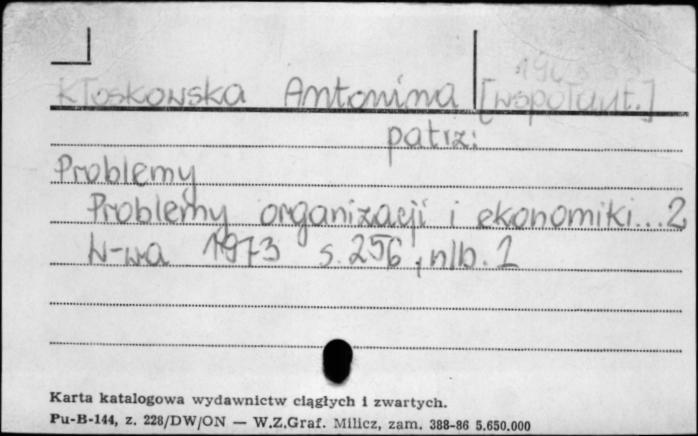 Kłoskowska Antonina [współaut.]
patrz:
Problemy
Problemy organizacji i ekonomiki...2
W-wa 1973 s.256, nlb. 1
Karta katalogowa wydawnictw ciągłych i zwartych.
Pu-B-144, z. 228/DW/ON — W.Z.Graf. Milicz, zam. 388-86 5.650.000